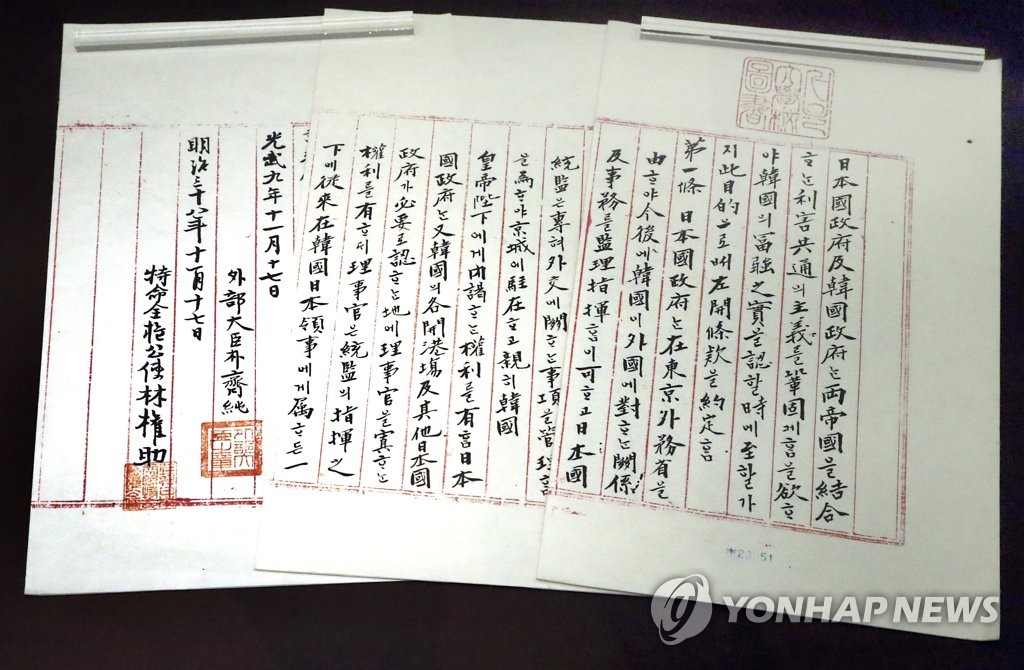 서울大學校圖書
日本國政府及韓國政府는兩帝國을結合
ᄒᆞ는利害共通의主義를鞏固케홈을欲ᄒᆞ
야韓國의富強之實을認할時에至할가
지此目的으로써左開條款을約定홈
第一條 日本國政府는在東京外務省을
由ᄒᆞ야今後에韓國이外國에對ᄒᆞ는關係
及事務를監理指揮홈이可ᄒᆞ고日本國
*23.51
統監은專혀外交에關ᄒᆞ는事項을管理홈
을爲ᄒᆞ야京城에駐在ᄒᆞ고親히韓國
皇帝陛下에게內謁ᄒᆞ는權利를有홈日本
國政府는又韓國의各開港場及其他日本國
政府가必要로認ᄒᆞ는地에理事官을寘ᄒᆞ는
權利를有ᄒᆞ되理事官은統監의指揮之
下에從來在韓國日本領事에게属ᄒᆞ든一
光武九年十一月十七日
外部大臣朴齊純
明治三十八年十一月十七日
特命全権公使林權助
YONHAP NEWS